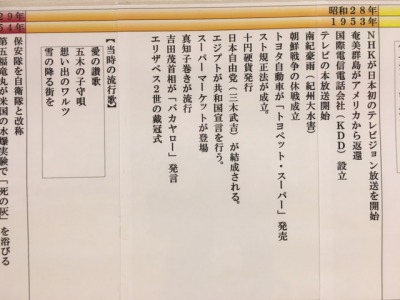 昭和28年
1953年
NHKが日本初のテレビジョン放送を開始
奄美群島がアメリカから返還
国際電信電話会社（KDD）設立
テレビの本放送開始
南紀豪雨（紀州大水害）
朝鮮戦争の休戦成立
トヨタ自動車が「トヨペット・スーパー」発売
スト規正法が成立。
十円硬貨発行
日本自由党（三木武吉）が結成される。
エジプトが共和国宣言を行う。
スーパーマーケットが登場
真知子巻きが流行
吉田茂首相が「バカヤロー」発言
エリザベス2世の戴冠式
【当時の流行歌】
愛の讃歌
五木の子守唄
思い出のワルツ
雪の降る街を
29年
54年
保安隊を自衛隊と改称
第五福竜丸が米国の水爆実験で「死の灰」を浴びる